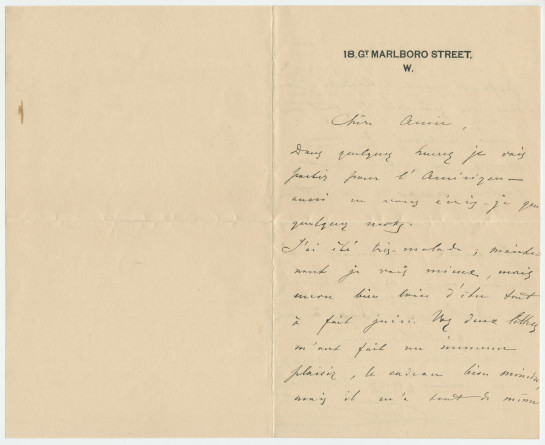 18. GT MARLBORO STREET,
W.
Chère Amie,
Dans quelques heures je vais
partir pour l'Amérique —
aussi ne vous écris-je que
quelques mots.
J'ai été très-malade; mainte-
nant je vais mieux, mais
encore bien loin d'être tout
à fait guéri. Vos deux lettres
m'ont fait un immense
plaisir, le cadeau bien moindre,
mais il m'a tout de même